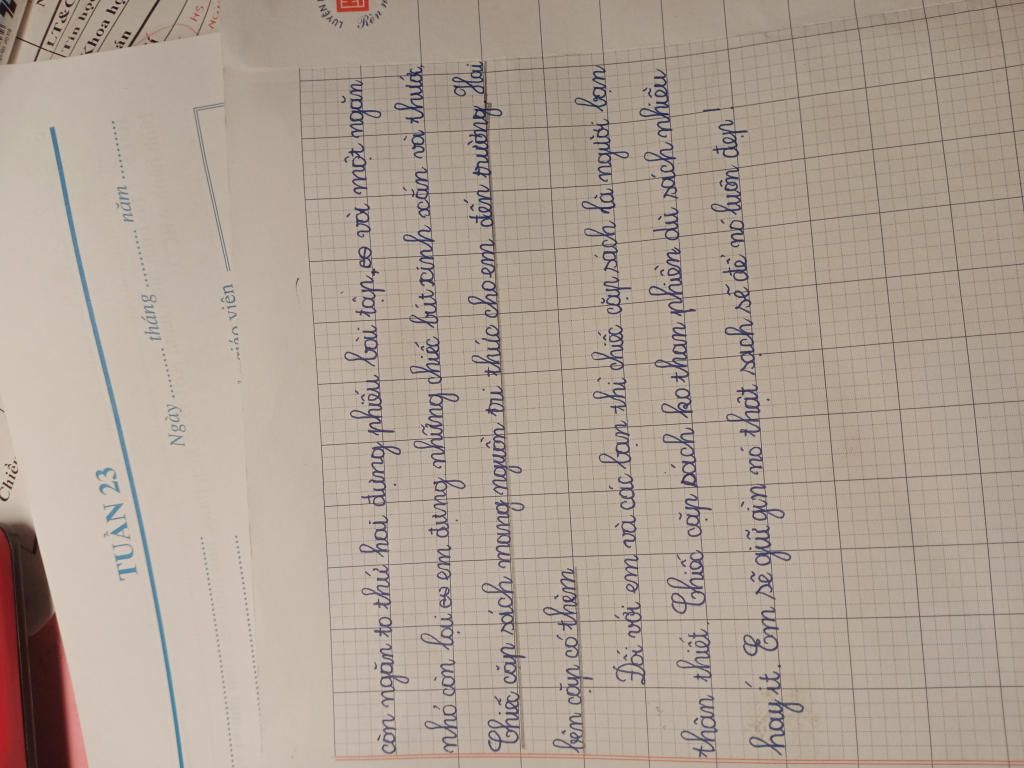 LT&C
Tin học
Khoa học
HS
Chiều
TUẦN 23
Ngày .......... tháng .......... năm ..........
viên
LUYỆN
còn ngăn to thứ hai đựng phiếu bài tập, và một ngăn
nhỏ còn lại em đựng những chiếc bút xinh xắn và thước
Chiếc cặp sách mang nguồn tri thức cho em đến trường. Hai
bên cặp có thêm
Đối với em và các bạn thì chiếc cặp sách là người bạn
thân thiết. Chiếc cặp sách ko than phiền dù sách nhiều
hay ít. Em sẽ giữ gìn nó thật sạch sẽ để nó luôn đẹp!